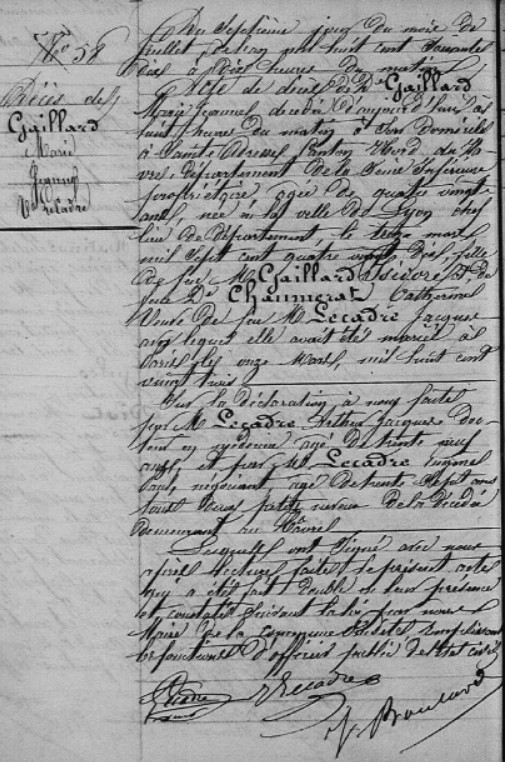 N° 58
Décès de
Gaillard
Marie
Jeanne
Ve Lecadre
Du Septième jour du mois de
Juillet de l'an mil huit cent Soixante
dix à dix heures du matin
Acte de décès de De Gaillard
Marie Jeanne décédée d'aujourd'hui à
huit heures du matin à son domicile
à Sainte Adresse Canton Nord du Ha-
vre, département de la Seine Inférieure
propriétaire âgée de quatre vingts
ans, née à la ville de Lyon chef
lieu de département, le treize mars
mil sept cent quatre vingt dix, fille
de feu Mr Gaillard Isidore et de
feue De Chaumerat Catherine
Veuve de feu Mr Lecadre Jacques
avec lequel elle avait été mariée à
Paris le onze Mars, mil huit cent
vingt trois
Sur la déclaration à nous faite
par Mr Lecadre Arthur Jacques doc-
teur en médecine âgé de trente neuf
ans, et par Mr Lecadre
négociant âgé de trente sept ans
tous deux petits neveux de la décédée
demeurant au Hâvre
Lesquels ont signé avec nous
après lecture faite le présent acte
qui a été fait double en leur présence
et constaté suivant la loi par nous
Maire de la Commune remplissant
les fonctions d'officier public de l'état civil
Lecadre